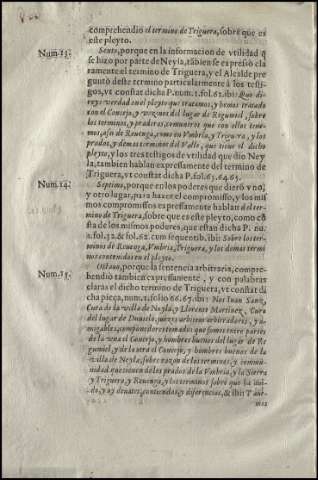 comprehendio el termino de Triguera, sobre que es
este pleyto.
Num. 13. Sexto, porque en la informacion de vtilidad q̃
se hizo por parte de Neyla, tãbien se expresiò cla
ramente el termino de Triguera, y el Alcalde pre
guntò deste termino particularmente à los testi-
gos, vt constat dicha P. num. 1. fol. 62. ibi: Que di
reys verdad en el pleyto que tratamos, y hemos tratado
con el Concejo, y vezinos del lugar de Regumiel, sobre
los terminos, y prados comuneros que con ellos tene-
mos, assi de Reuenga, como en Vmbria, y Triguera, y los
prados, y demas terminos del Valle, que tiene el dicho
pleyto, y los tres testigos de vtilidad que dio Ney
la, tambien hablan expressamente del termino de
Triguera, vt constat dicha P. fol. 63. 64. 65.
Num. 14. Septimo, porque en los poderes que dierõ v no,
y otro lugar, para hazer el compromisso, y los mis
mos compromissos expressamente hablan del termi-
no de Triguera, sobre que es este pleyto, como cõ
sta de los mismos poderes, que estan dicha P. nu.
1. fol. 52. & fol. 62. cum sequentib. ibi: Sobre los ter-
minos de Reuenga, Vmbria, Triguera, y los demas termi
nos contenidos en el pleyto.
Num. 15. Octauo, porque la sentencia arbitraria, compre-
hendiò tambien expressamente, y con palabras
claras el dicho termino de Triguera, vt constat di
cha pieça, num. 1. folio 66. 67. ibi: Nos Iuan Sanz,
Cura de la villa de Neyla, y Llorente Martinez, Cura
del lugar de Duruelo, juezes arbitros arbitradores, y a-
migables componedores tomados que somos entre partes
de la vna el Concejo, y hombres buenos del lugar de Re
gumiel, y de la otra el Concejo, y hombres buenos de la
villa de Neyla, sobre razon de los terminos, y comu-
nidad que tienen de los prados de la Vmbria, y la Sierra
y Triguera, y Reuenga, y los terminos sobre que ha aui-
do, y ay debates, contiendas, y diferencias, & ibi: Y aui-